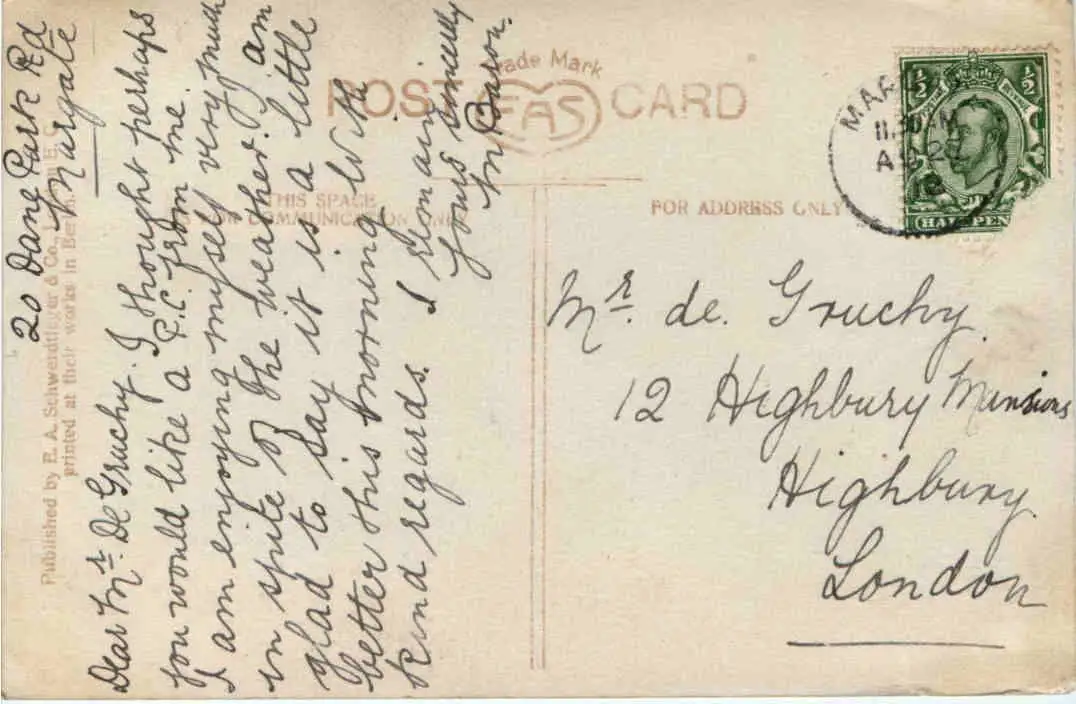 20 Dane Park Rd
Margate
Dear Mr. De Gruchy. I thought perhaps
you would like a P.C. from me.
I am enjoying myself very much
in spite of the weather, I am
glad to say it is a little
better this morning. With
kind regards. I remain
yours sincerely
M Baron.
Published by E. A. Schwerdtfeger & Co., London E.C.
printed at their works in Berlin.
Trade Mark
POST EAS CARD
THIS SPACE
FOR COMMUNICATION ONLY
FOR ADDRESS ONLY
MAR
11.30 AM
½ ½
HALFPEN
Mr. de. Gruchy.
12 Highbury Mansions
Highbury.
London